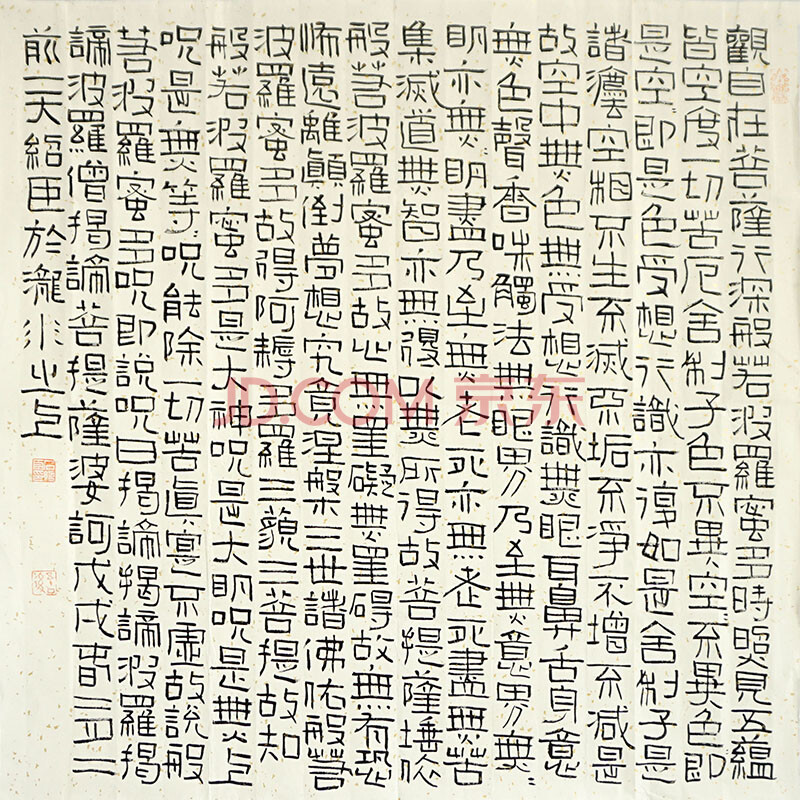 觀自在菩薩行深般若波羅蜜多時照見五蘊
皆空度一切苦厄舍利子色不異空不異色即
是空即是色受想行識亦復如是舍利子是
諸法空相不生不滅不垢不淨不增不減是
故空中無色無受想行識無眼耳鼻舌身意
無色聲香味觸法無眼界乃至無意界無
明亦無明盡乃至無老死亦無老死盡無苦
集滅道無智亦無得以無所得故菩提薩埵依
般若波羅蜜多故心無罣礙無罣碍故無有恐
怖遠離顛倒夢想究竟涅槃三世諸佛依般若
波羅蜜多故得阿耨多羅三藐三菩提故知
般若波羅蜜多是大神咒是大明咒是無上
咒是無等咒能除一切苦真實不虛故說般
若波羅蜜多咒即說咒曰揭諦揭諦波羅揭
諦波羅僧揭諦菩提薩婆訶戊戌春
前一天紹臣於瀧水之上
JD.COM 京东